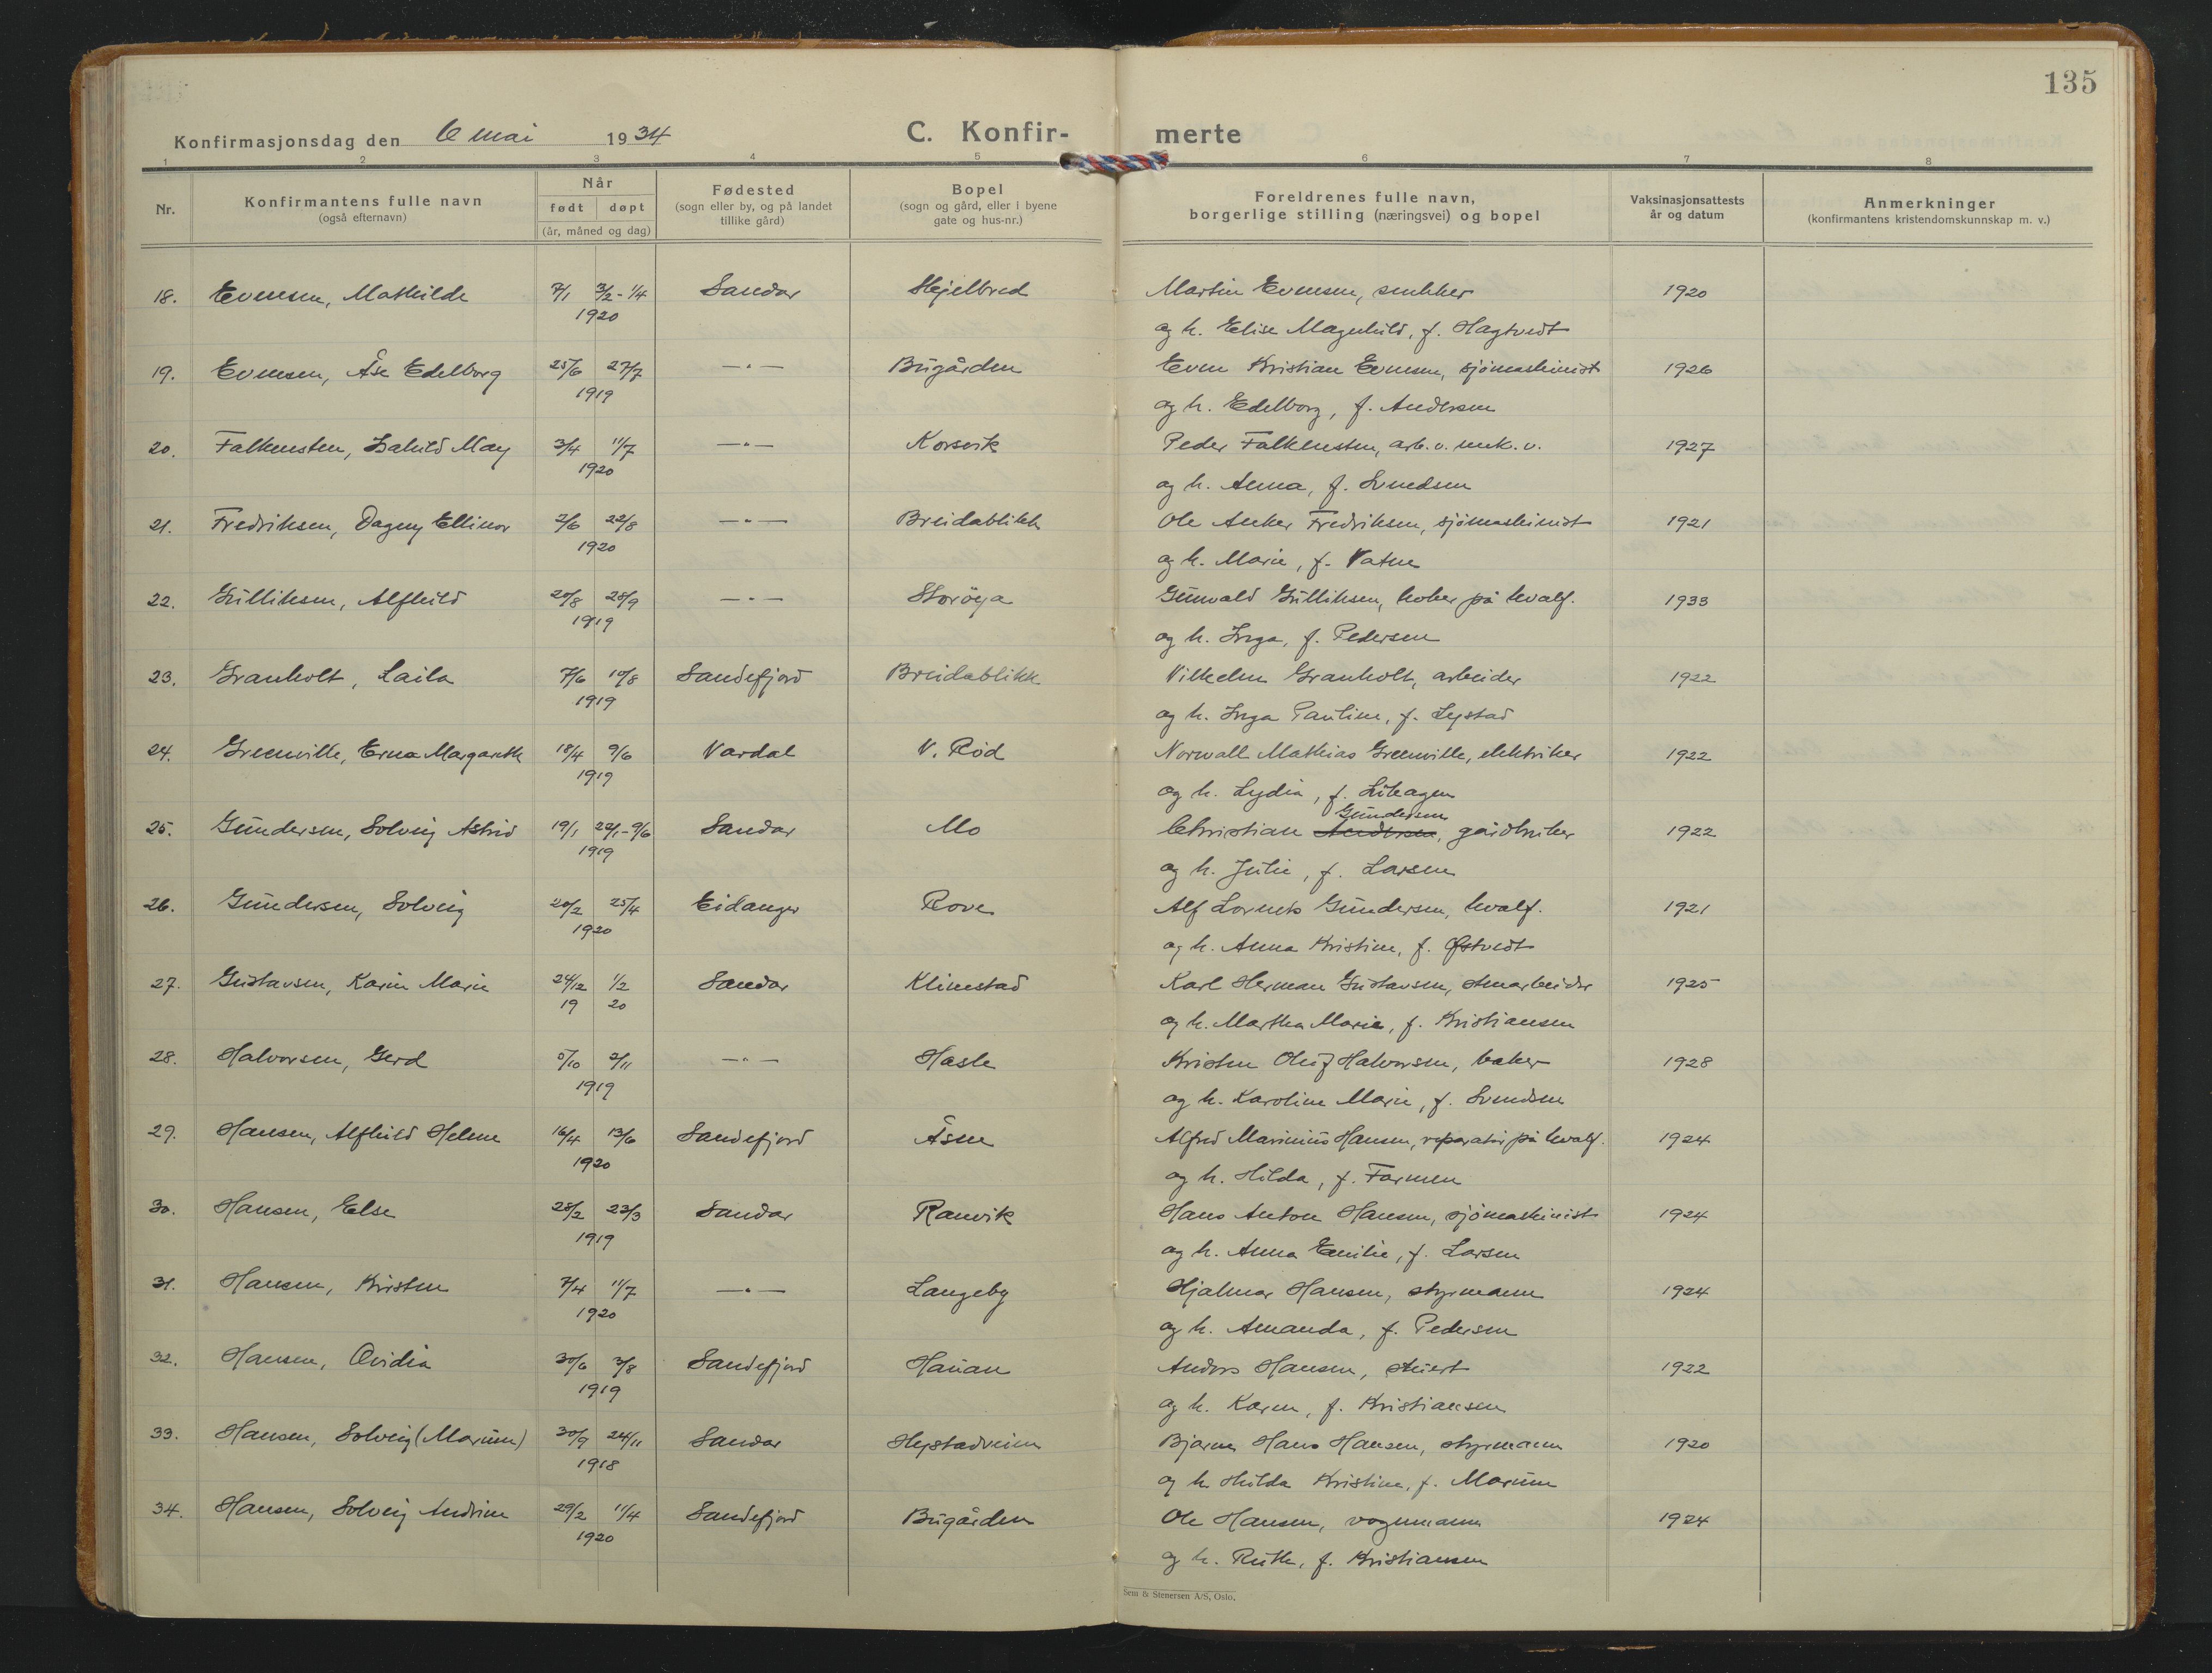 135
Konfirmasjonsdag den 6 mai 1934
C. Konfir- merte
1 2 3 4 5 6 7 8
Nr.
Konfirmantens fulle navn
(også efternavn)
Når
født døpt
(år, måned og dag)
Fødested
(sogn eller by, og på landet
tillike gård)
Bopel
(sogn og gård, eller i byene
gate og hus-nr.)
Foreldrenes fulle navn,
borgerlige stilling (næringsvei) og bopel
Vaksinasjonsattests
år og datum
Anmerkninger
(konfirmantens kristendomskunnskap m. v.)
18. Evensen, Mathilde 7/1 3/2-1/4 Sandar Hjelbred Martin Evensen, snekker 1920
1920 og h. Elise Magnhild, f. Hagtvedt
19. Evensen, Åse Edelborg 25/6 27/7 —„— Bugården Even Kristian Evensen, sjømaskinist 1926
1919 og h. Edelborg, f. Andersen
20. Falkensten, Isahild May 3/4 11/7 —„— Korsvik Peder Falkensten, arb. v. mek. v. 1927
1920 og h. Anna, f. Svendsen
21. Fredriksen, Dagny Ellinor 2/6 22/8 —„— Breidablikk Ole Anker Fredriksen, sjømaskinist 1921
1920 og h. Marie, f. Vatne
22. Gulliksen, Alfhild 20/8 28/9 —„— Storøya Gunvald Gulliksen, koker på hvalf. 1933
1919 og h. Inga, f. Pedersen
23. Granholt, Laila 7/6 10/8 Sandefjord Breidablikk Vilhelm Granholt, arbeider 1922
1919 og h. Inga Pauline, f. Lystad
24. Greenville, Erna Margareth 18/4 9/6 Vardal V. Rød Norwall Mathias Greenville, elektriker 1922
1919 og h. Lydia, f. Lihagen
Gundersen
25. Gundersen, Solveig Astrid 19/1 22/1-9/6 Sandar Mo Christian Andersen, gårdbruker 1922
1919 og h. Julie, f. Larsen
26. Gundersen, Solveig 20/2 25/4 Eidanger Rove Alf Lorents Gundersen, hvalf. 1921
1920 og h. Anna Kristine, f. Østvedt
27. Gustavsen, Karin Marie 24/12 1/2 Sandar Klinestad Karl Herman Gustavsen, stenarbeider 1925
19 20 og h. Martha Marie, f. Kristiansen
28. Halvorsen, Gerd 5/10 2/11 —„— Hasle Kristen Oluf Halvorsen, baker 1928
1919 og h. Karoline Marie, f. Svendsen
29. Hansen, Alfhild Helene 16/4 13/6 Sandefjord Åsen Alfred Marinius Hansen, reparatør på hvalf. 1924
1920 og h. Hilda, f. Farmen
30. Hansen, Else 28/2 23/3 Sandar Ranvik Hans Anton Hansen, sjømaskinist 1924
1919 og h. Anna Emilie, f. Larsen
31. Hansen, Kirsten 7/4 11/7 —„— Langeby Hjalmar Hansen, styrmann 1924
1920 og h. Amanda, f. Pedersen
32. Hansen, Ovidia 30/6 3/8 Sandefjord Hauan Anders Hansen, stuert 1922
1919 og h. Karen, f. Kristiansen
33. Hansen, Solveig (Marum) 30/9 24/11 Sandar Hystadveien Bjarne Hans Hansen, styrmann 1920
1918 og h. Hilda Kristine, f. Marum
34. Hansen, Solveig Andrine 29/2 11/4 Sandefjord Bugården Ole Hansen, vognmann 1924
1920 og h. Ruth, f. Kristiansen
Sem & Stenersen A/S, Oslo.